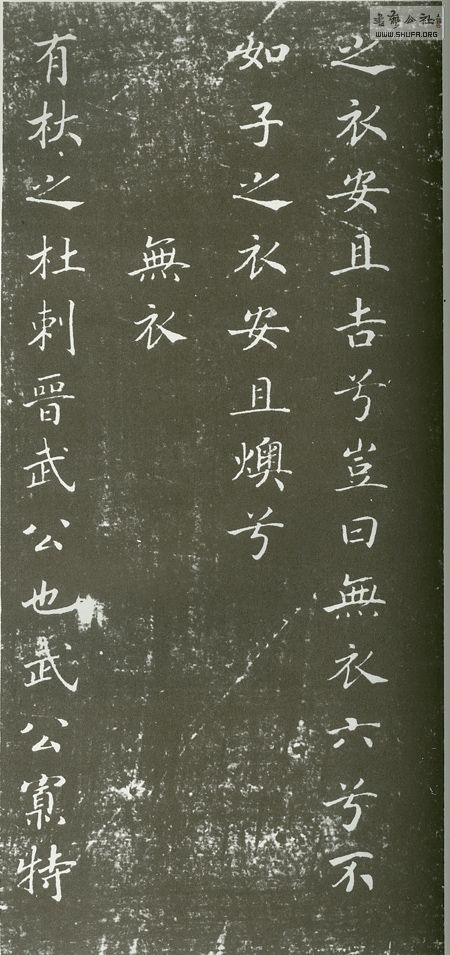 之衣安且吉兮豈曰無衣六兮不
如子之衣安且燠兮
無衣
有杕之杜刺晉武公也武公寡特
書法公社
WWW.SHUFA.ORG